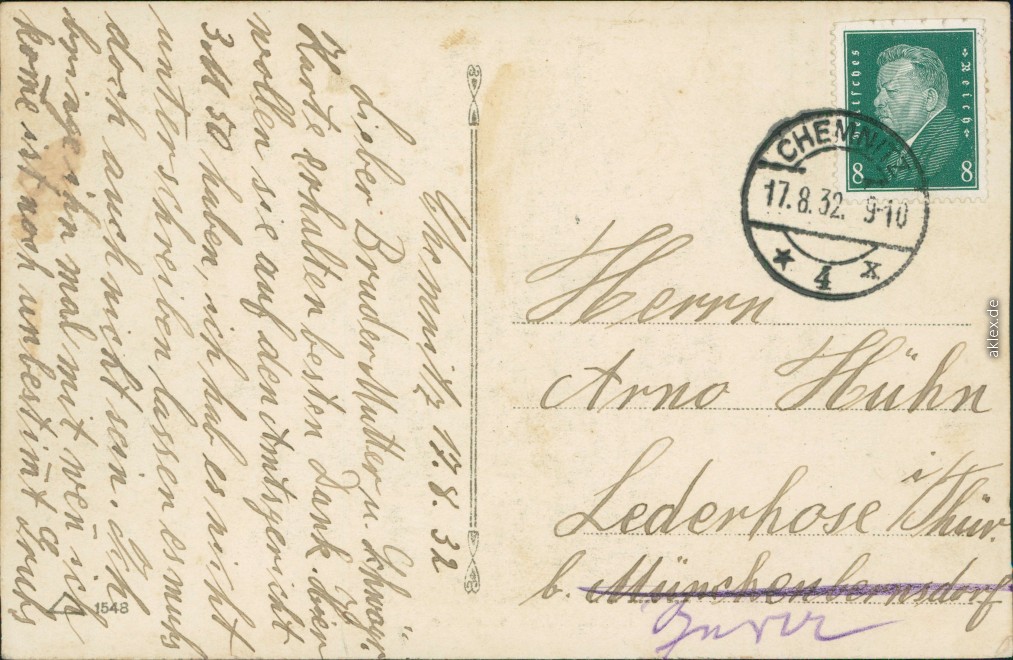 Chemnitz 17.8.32
Lieber Bruder Mutter u. Schwägr.
Karte erhalten besten Dank. hier
wollen sie auf den Amtsgericht
3 M 50 haben, ich hab es nicht
unterschreiben lassen es muß
doch auch nicht sein. Ich
bringe ihn mal mit wen̄ ich
kom̄e ist noch unbestim̄t Gruß
1548
Deutsches Reich
8 8
CHEMNITZ
17.8.32. 9-10
* 4 x
Herrn
Arno Hühn
Lederhose i/Thür.
b. Münchenbernsdorf
aklex.de